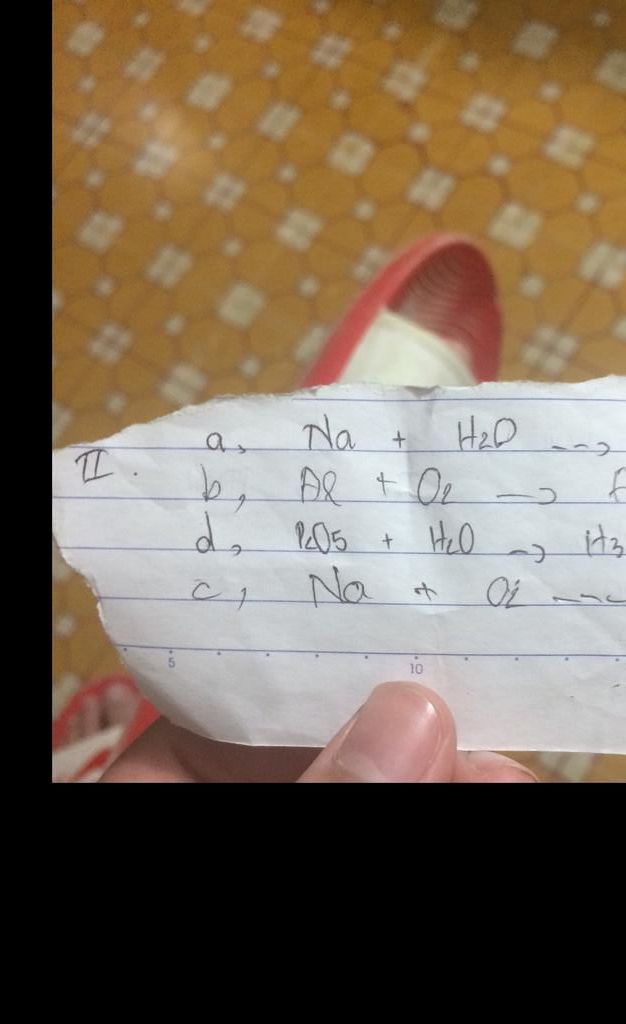 II. a, Na + H2O --->
b, Al + O2 -->
d, P2O5 + H2O -> H3
c, Na + O2 ---
5 10